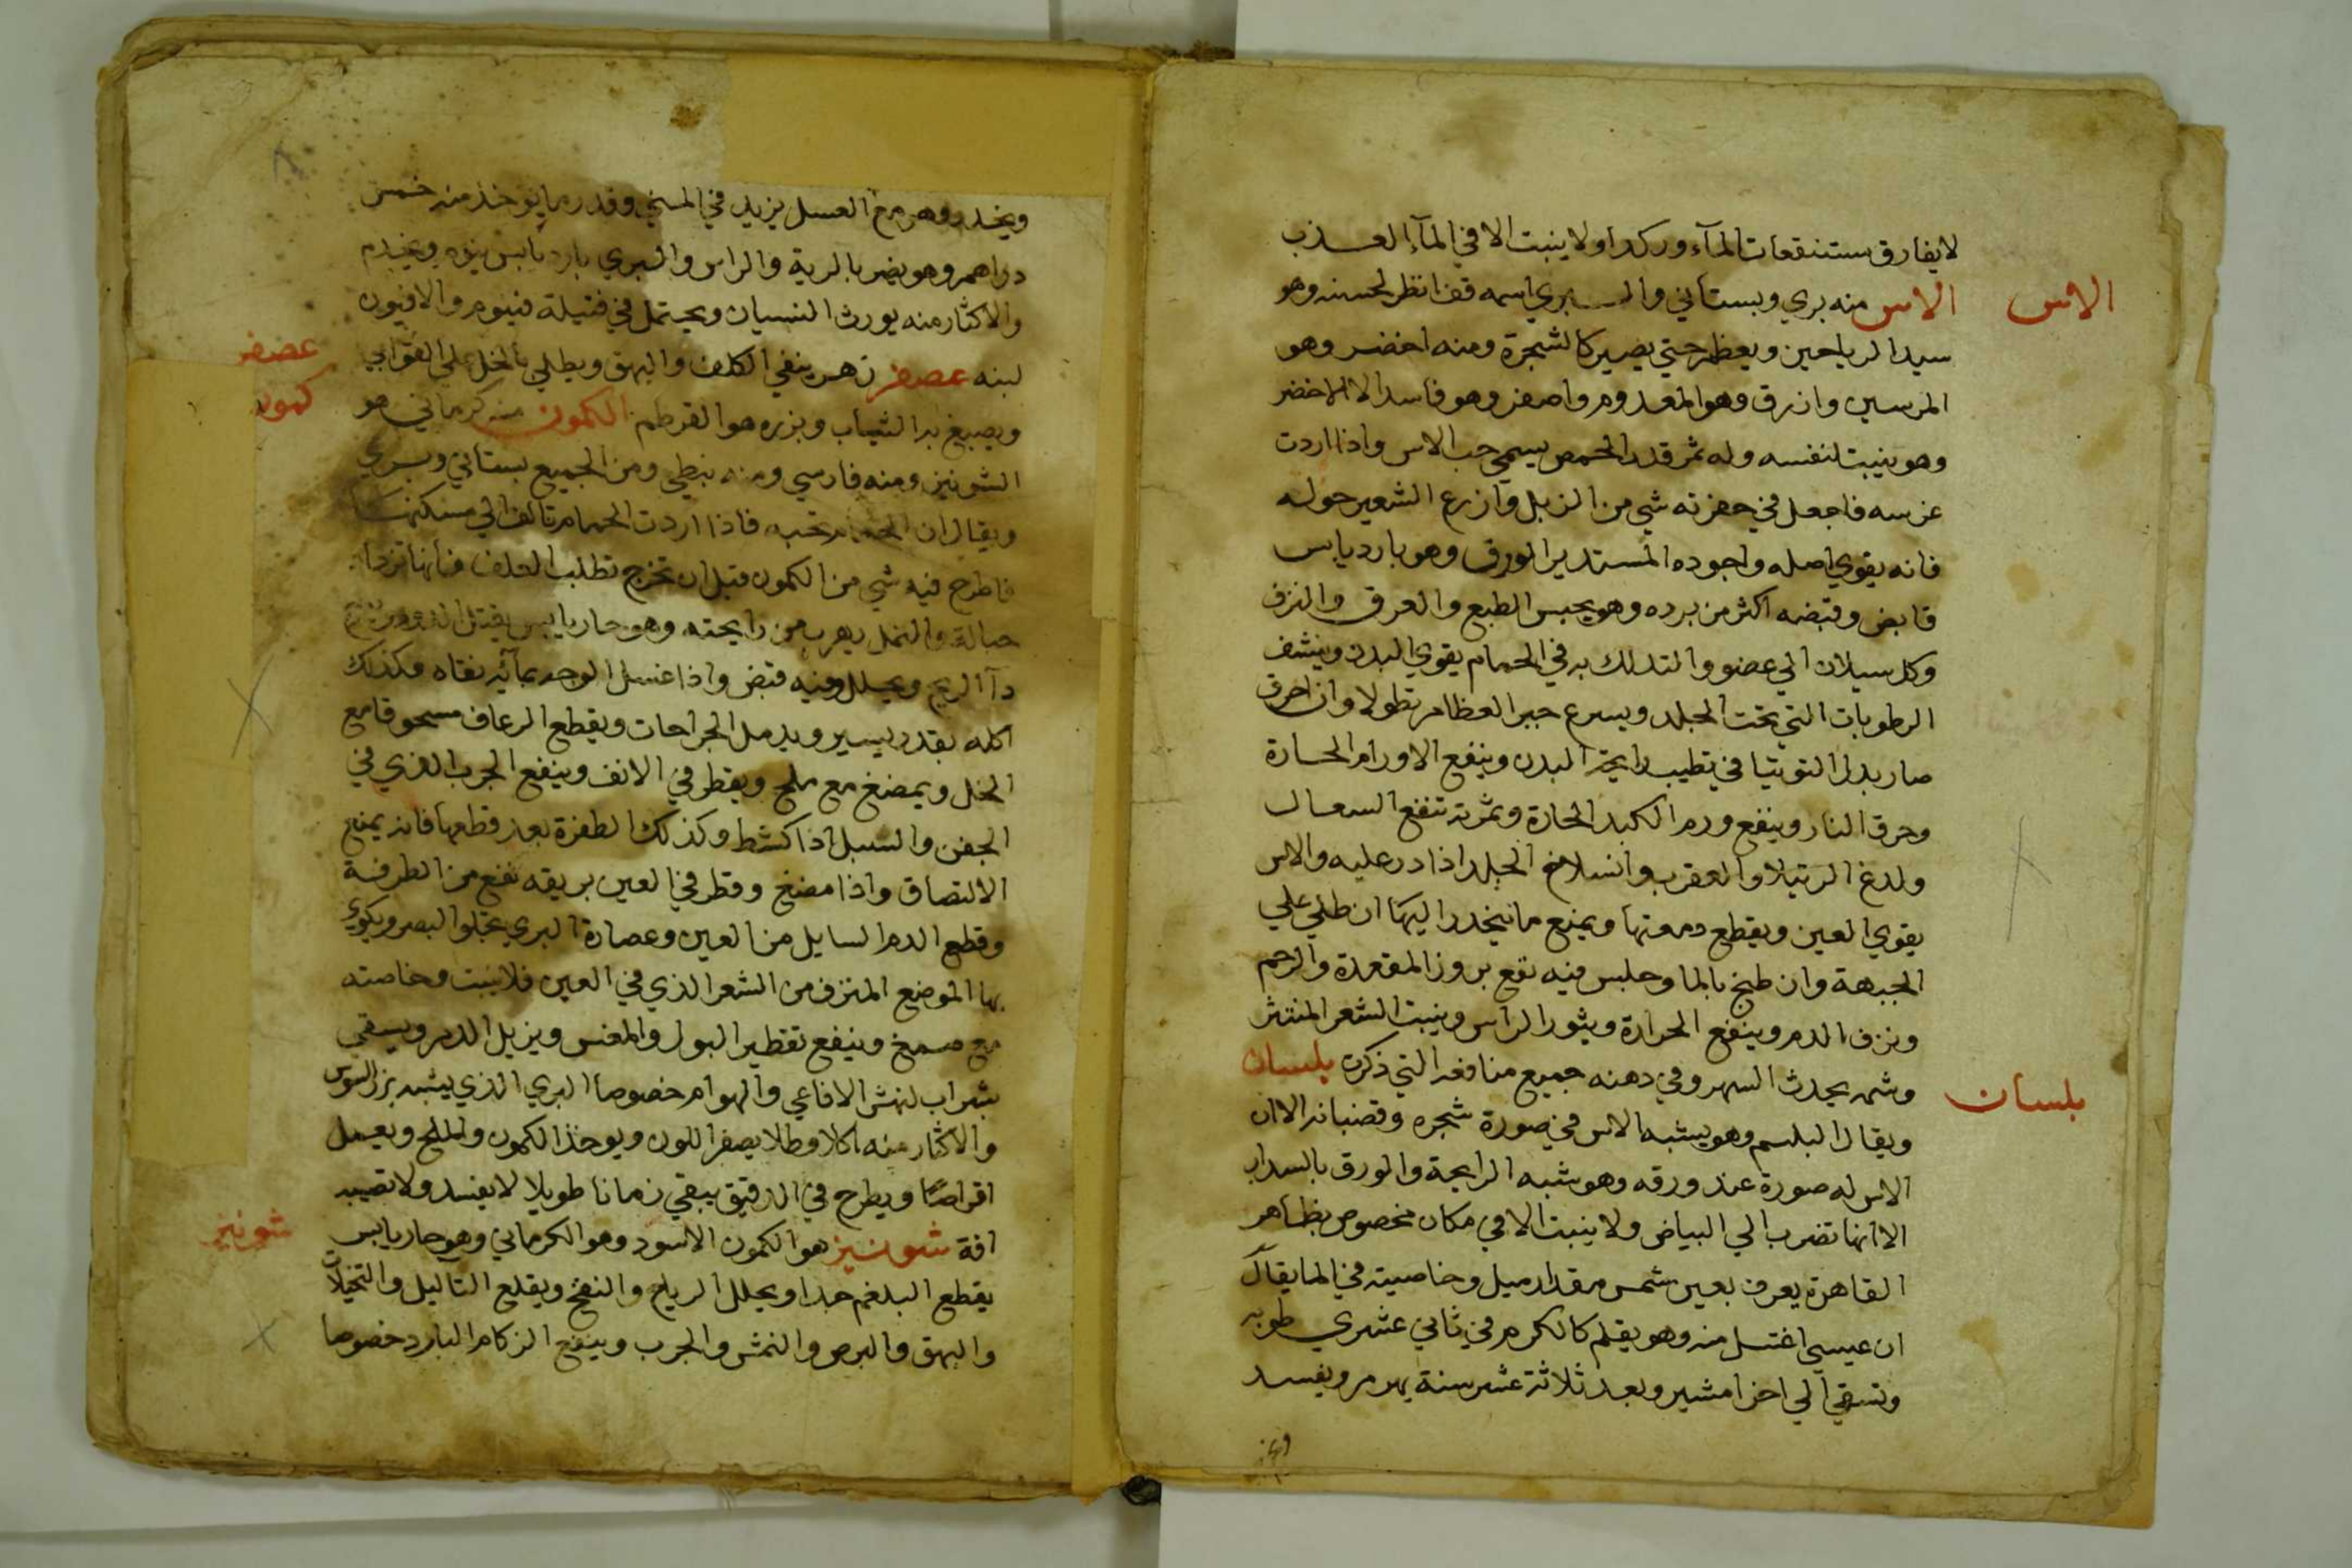 لا يفارق مستنقعات المآء وركدا ولا ينبت الا في المآء العذب
الاس
الاس منه بري وبستاني والبري اسمه قف انظر لحسنه وهو
سيد الرياحين ويعظم حتي يصير كالشجرة ومنه اخضر وهو
المرسين وازرق وهو المعدوم واصفر وهو فاسد الا الاخضر
وهو ينبت لنفسه وله ثمر قدر الحمص يسمي حب الاس واذا اردت
غرسه فاجعل في حفرته شي من الزبل وازرع الشعير حوله
فانه يقوي اصله واجوده المستدير الورق وهو بارد يابس
قابض وقبضه اكثر من برده وهو يحبس الطبع والعرق والنزف
وكل سيلان الي عضو والتدلك به في الحمام يقوي البدن وينشف
الرطوبات التي تحت الجلد ويسرع جبر العظام نطولا وان احرق
صار بدل التوتيا في تطييب رايحة البدن وينفع الاورام الحارة
وحرق النار وينفع ورم الكبد الحارة وثمرته تنفع السعال
ولدغ الرتيلا والعقرب وانسلاخ الجلد اذا در عليه والاس
يقوي العين ويقطع دمعتها ويمنع ما ينحدر اليها ان طلي علي
الجبهة وان طبخ بالما وجلس فيه نفع بروز المقعدة والرحم
ونزف الدم وينفع الحرارة وبثور الراس وينبت الشعر المنتثر
وشمه يحدث السهر وفي دهنه جميع منافعه التي ذكرت بلسان
بلسان
ويقال البلسم وهو يشبه الاس في صورة شجره وقضبانه الا ان
الاس له صورة عند ورقه وهو شبه الرايحة والورق بالسداب
الا انها تضرب الي البياض ولا ينبت الا في مكان مخصوص بظاهر
القاهرة يعرف بعين شمس مقدار ميل وخاصيته في الما يقال
ان عيسي اغتسل منه وهو يقلم كالكرم في ثاني عشري طوبه
وتسقي الي اخر امشير وبعد ثلاثة عشر سنة يهرم ويفسد
ويخدر وهو مع العسل يزيد في المني وقدر ما يوخذ منه خمس
دراهم وهو يضر بالرية والراس والبري بارد يابس ينوم ويخدر
والاكثار منه يورث النسيان ويحتمل في فتيلة فينوم والافيون
عصفر
لبنه عصفر زهره ينقي الكلف والبهق ويطلي بالخل علي القوابي
كمون
ويصبغ به الثياب وبزره هو القرطم الكمون منه كرماني هو
الشونيز ومنه فارسي ومنه نبطي ومن الجميع بستاني وبري
ويقال ان الحمام تحبه فاذا اردت الحمام تالف الي مسكنها
فاطرح فيه شي من الكمون قبل ان تخرج تطلب العلف فانها تزداد
حبا له والنمل يهرب من رايحته وهو حار يابس يقتل الدود
دآ الريح ويحلل وفيه قبض واذا غسل الوجه بمآئه نقاه وكذلك
اكله بقدر يسير ويدمل الجراحات ويقطع الرعاف مسحوقا مع
الخل ويمضغ مع ملح ويقطر في الانف وينفع الجرب الذي في
الجفن والسبل اذا كشط وكذلك الظفرة بعد قطعها فانه يمنع
الالتصاق واذا مضغ وقطر في العين بريقه نفع من الطرفة
وقطع الدم السايل من العين وعصارة البري تجلوا البصر ويكوي
بها الموضع المنزف من الشعر الذي في العين فلا ينبت وخاصته
مع صمغ وينفع تقطير البول والمغس ويزيل الدم ويسقي
بشراب لنهش الافاعي والهوام خصوصا البري الذي يشبه بزر السوس
والاكثار منه اكلا وطلا يصفر اللون ويوخذ الكمون والملح ويعمل
اقراصا ويطرح في الدقيق يبقي زمانا طويلا لا يفسد ولا تصيبه
شونيز
افة شونيز هو الكمون الاسود وهو الكرماني وهو حار يابس
يقطع البلغم جدا ويحلل الرياح والنفخ ويقلع الثاليل والتخيلان
والبهق والبرص والنمش والجرب وينفع الزكام البارد خصوصا